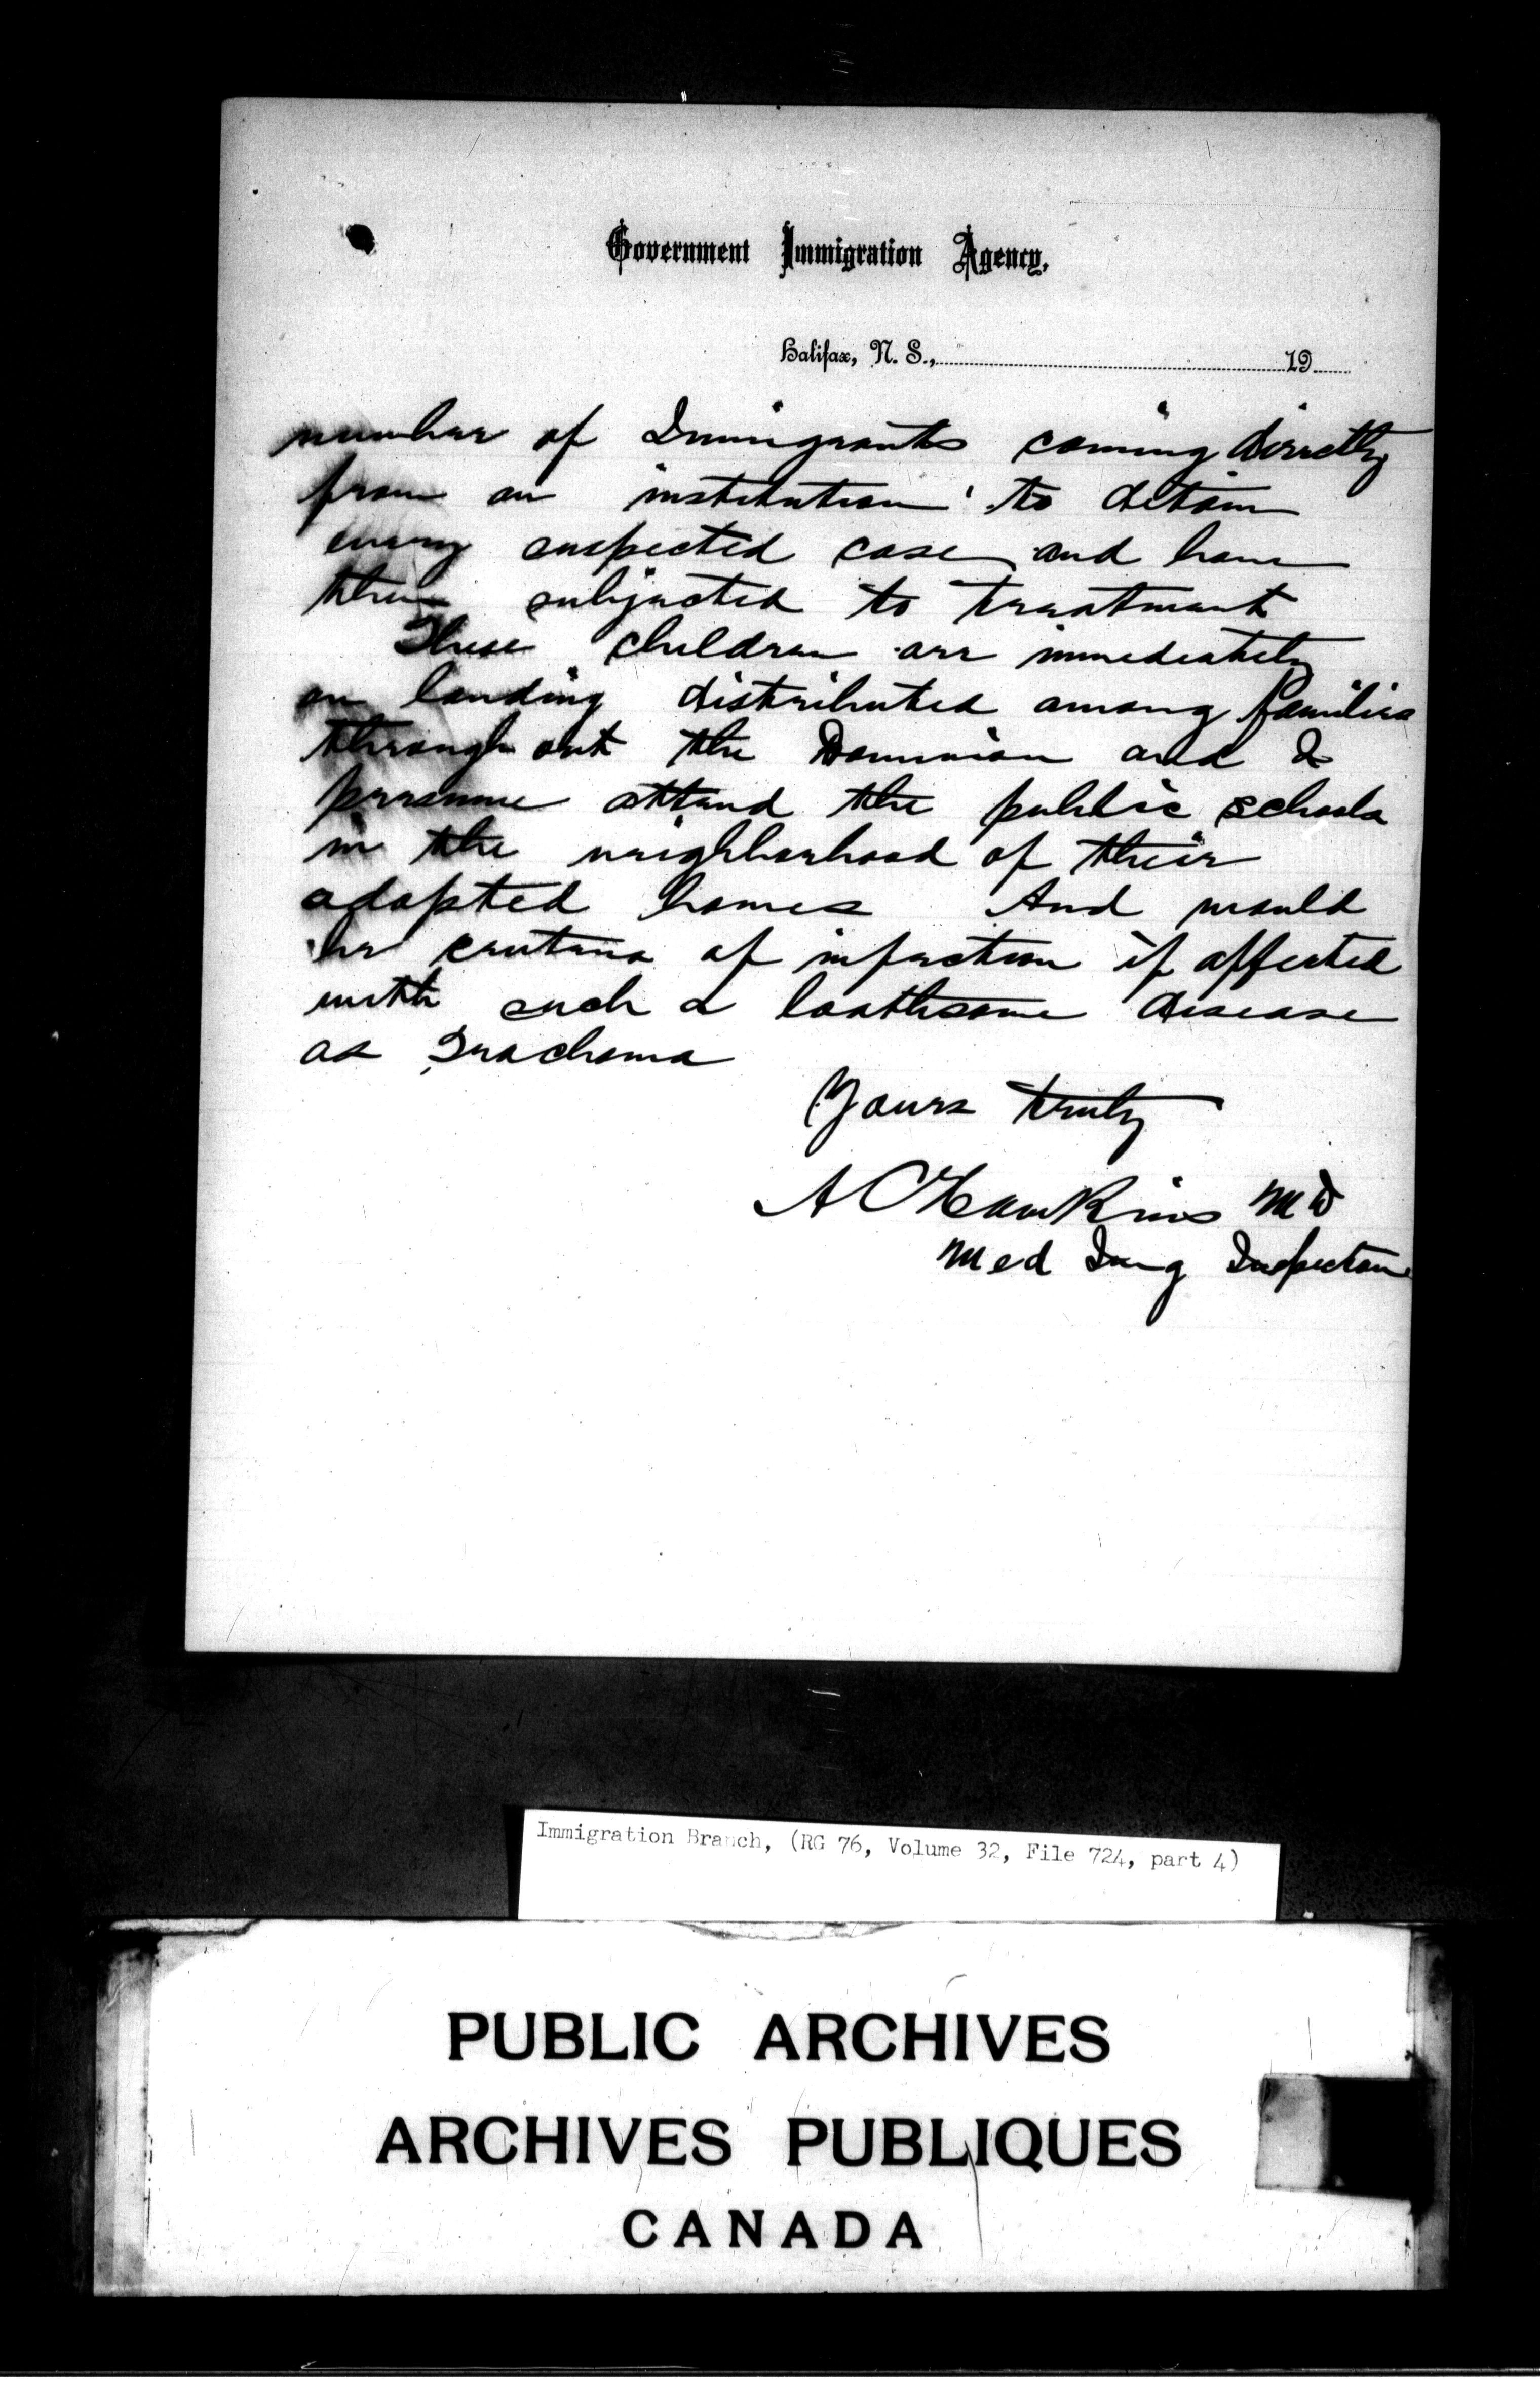 Government Immigration Agency.
Halifax, N. S., 19
number of Immigrants coming directly
from an institution to detain
every suspected case and have
them subjected to treatment
These children are immediately
on landing distributed among families
through out the Dominion and I
presume attend the public schools
in the neighborhood of their
adopted homes And would
be centers of infection if affected
with such a loathsome disease
as Trachoma
Yours truly
A C Hawkins MD
Med Img Inspector
Immigration Branch, (RG 76, Volume 32, File 724, part 4)
PUBLIC ARCHIVES
ARCHIVES PUBLIQUES
CANADA